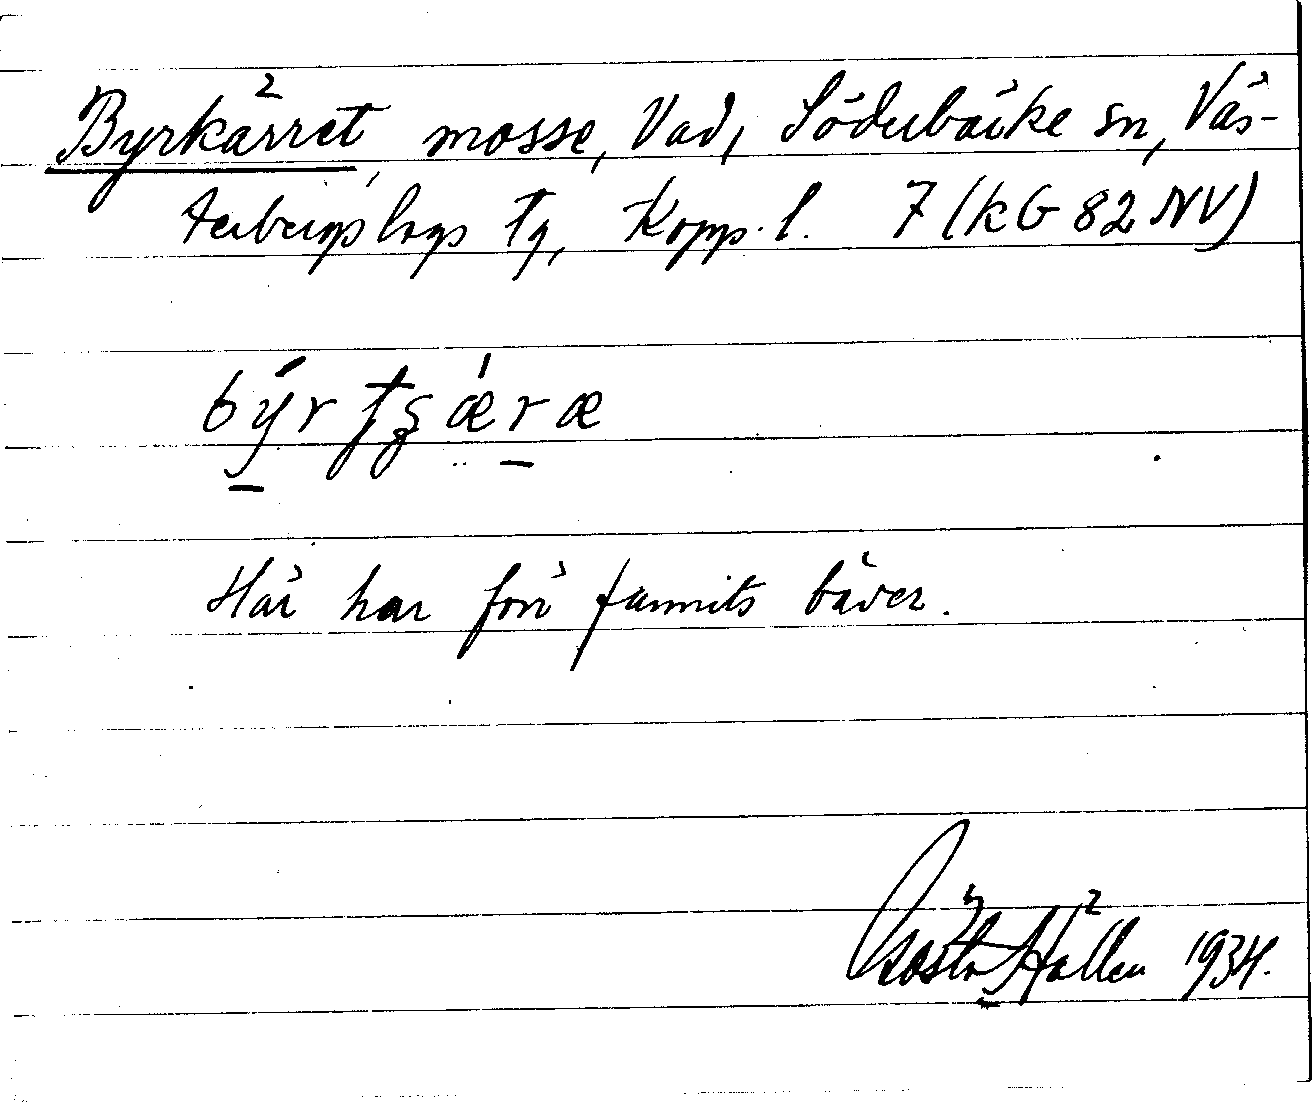 Byrkärret, mosse, Vad, Söderbärke sn, Väs-
terbergslags tg, Kopp. l. 7 (KG 82 NV)
býrtʂǽræ
Här har förr funnits bäver.
Gösta Hällen 1934.